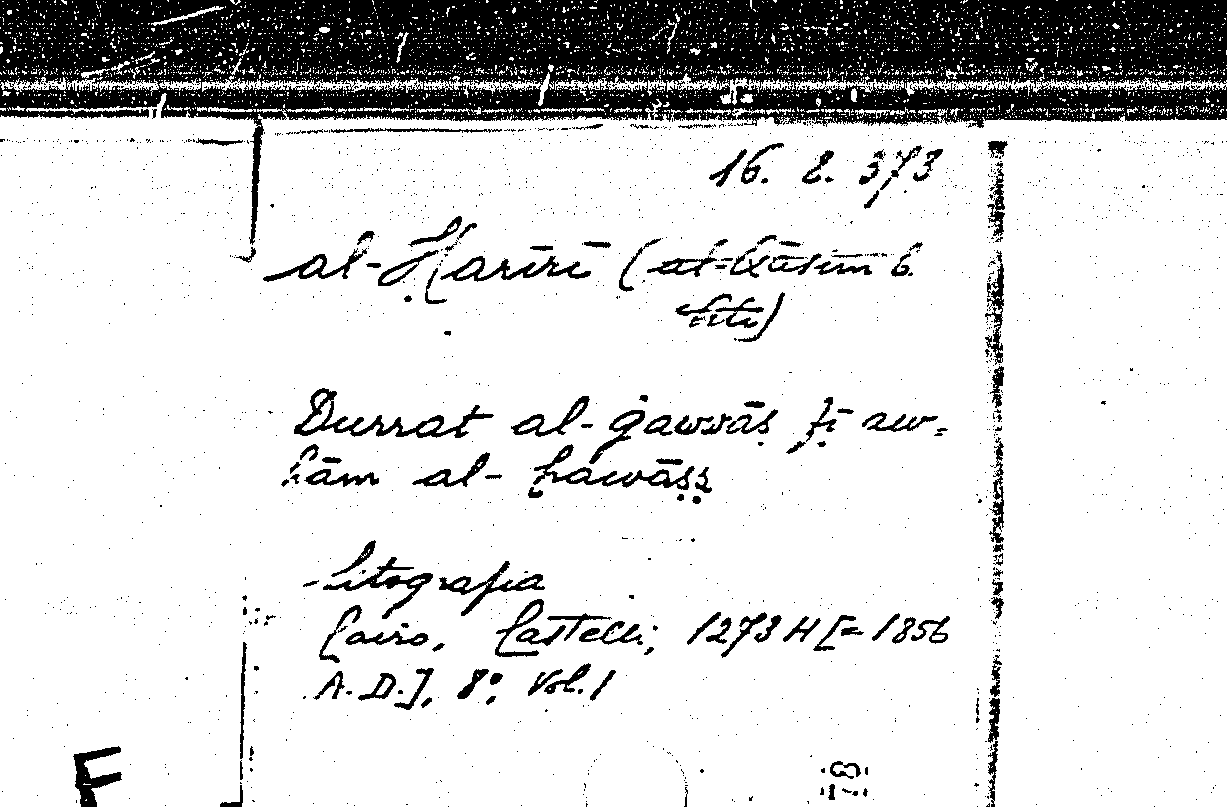 16. 2. 373
al-Ḥarīrī (al-Qāsim b.
ʿAlī)
Durrat al-ġawwāṣ fī aw=
hām al-ḫawāṣṣ
- litografia
Cairo, Castelli, 1273 H [= 1856
A.D.], 8°, Vol. 1
F